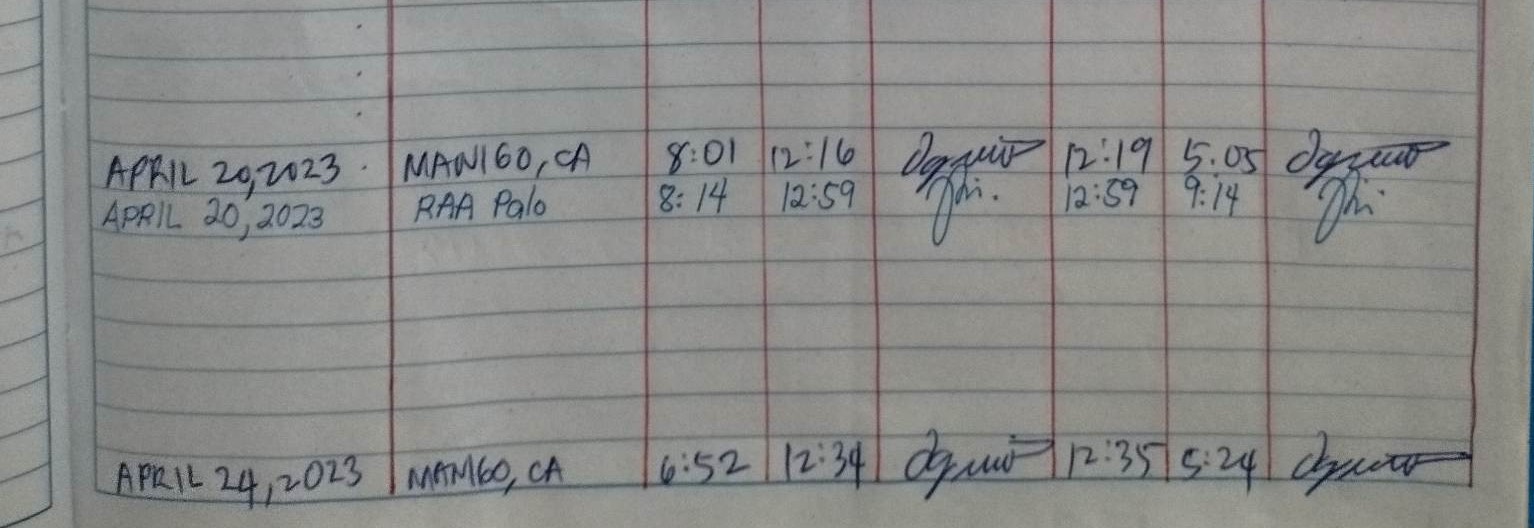 APRIL 20,2023 MANIGO, CA 8:01 12:16 12:19 5:05
APRIL 20,2023 RAA Palo 8:14 12:59 12:59 9:14
APRIL 24,2023 MANIGO, CA 6:52 12:34 12:35 5:24